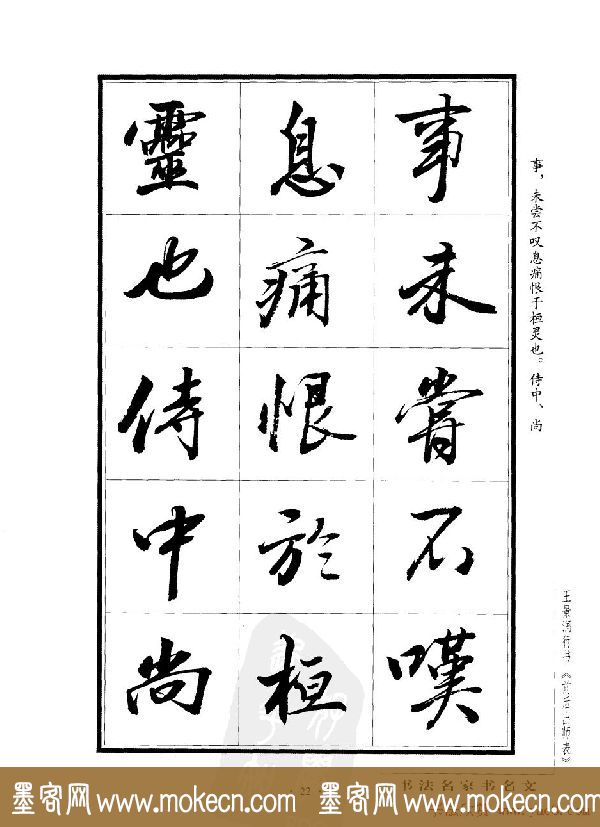 事未嘗不嘆
息痛恨於桓
靈也侍中尚
事，未尝不叹息痛恨于桓灵也。侍中、尚
行书《前后出师表》
22
书法名家书名文
墨客网 www.mokecn.com 墨客网 www.mokecn.com